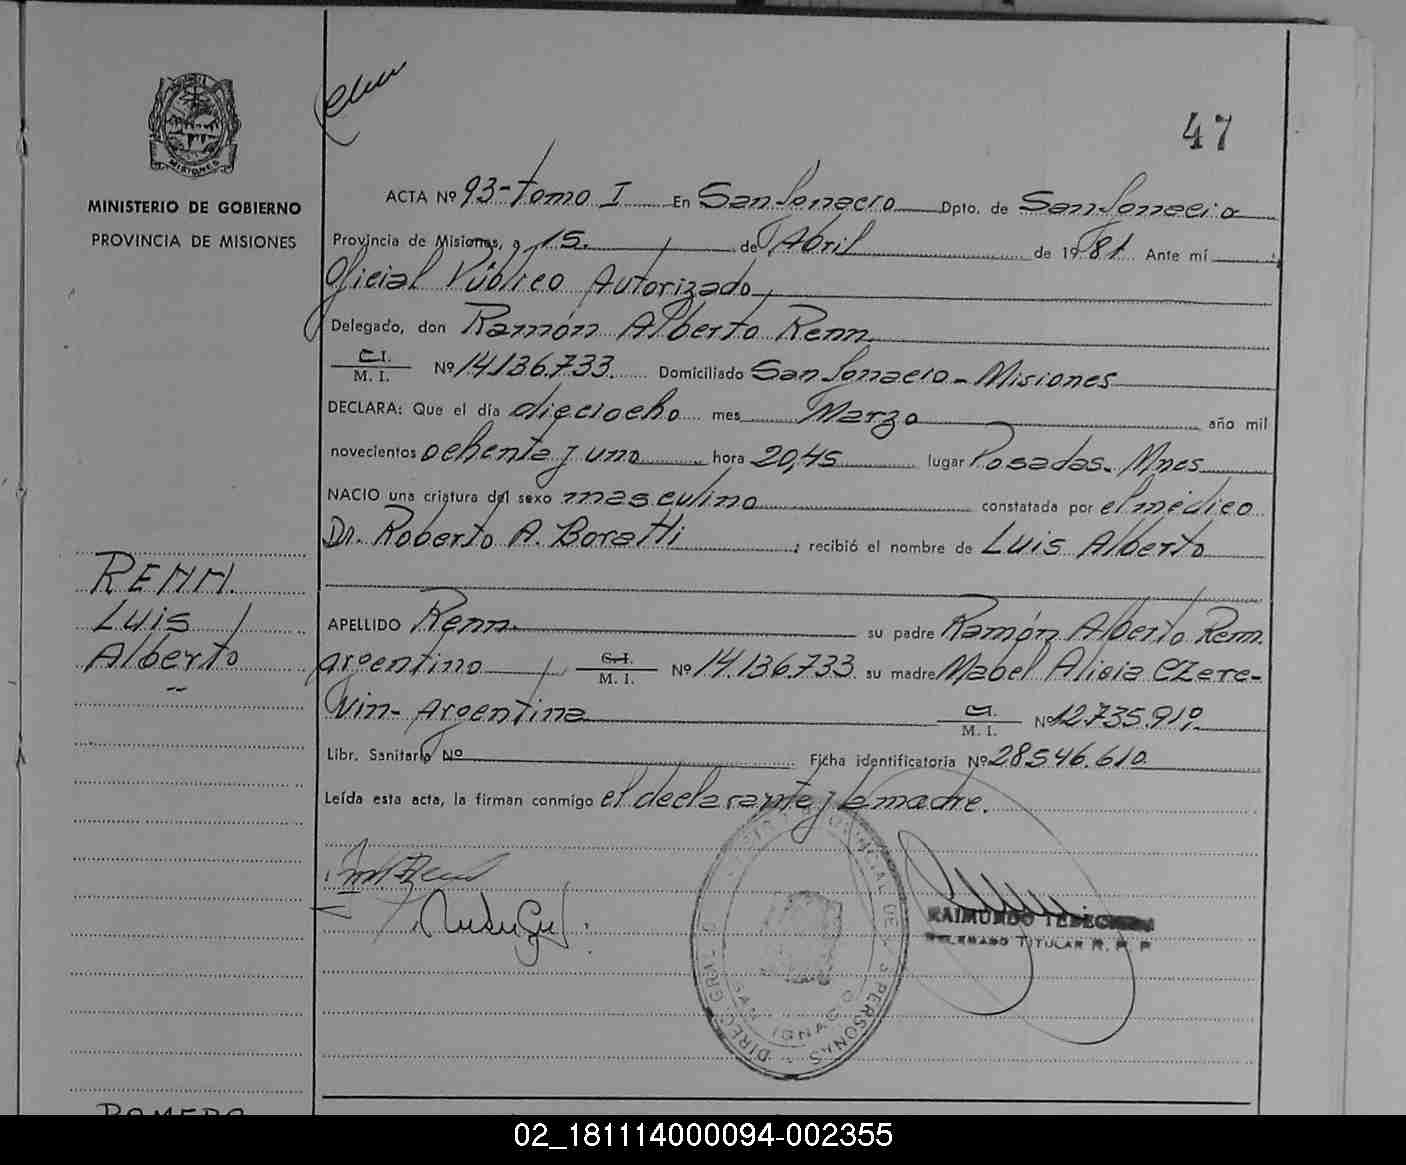 47
MISIONES
MINISTERIO DE GOBIERNO
PROVINCIA DE MISIONES
ACTA Nº 93-tomo I En San Ignacio Dpto. de San Ignacio
Provincia de Misiones, a 15. de Abril de 1981. Ante mí
Oficial Público Autorizado
Delegado, don Ramón Alberto Renn
C.I.
M. I. Nº 14.136.733. Domiciliado San Ignacio - Misiones
DECLARA: Que el día dieciocho mes Marzo año mil
novecientos ochenta y uno hora 20,45 lugar Posadas. Mnes
NACIO una criatura del sexo masculino constatada por el médico
Dr. Roberto A. Boratti ; recibió el nombre de Luis Alberto
RENN.
Luis
Alberto
APELLIDO Renn. su padre Ramón Alberto Renn.
argentino C.I.
M. I. Nº 14.136.733. su madre Mabel Alicia Czere-
vin - Argentina C.I.
M. I. Nº 12.735.919
Libr. Sanitaria Nº Ficha identificatoria Nº 28.546.610
Leída esta acta, la firman conmigo el declarante y la madre.
DIREC. GRAL. PROVINCIAL DE PERSONAS
SAN IGNACIO
RAIMUNDO
DELEGADO TITULAR R. P. P
ROMERO
02_181114000094-002355